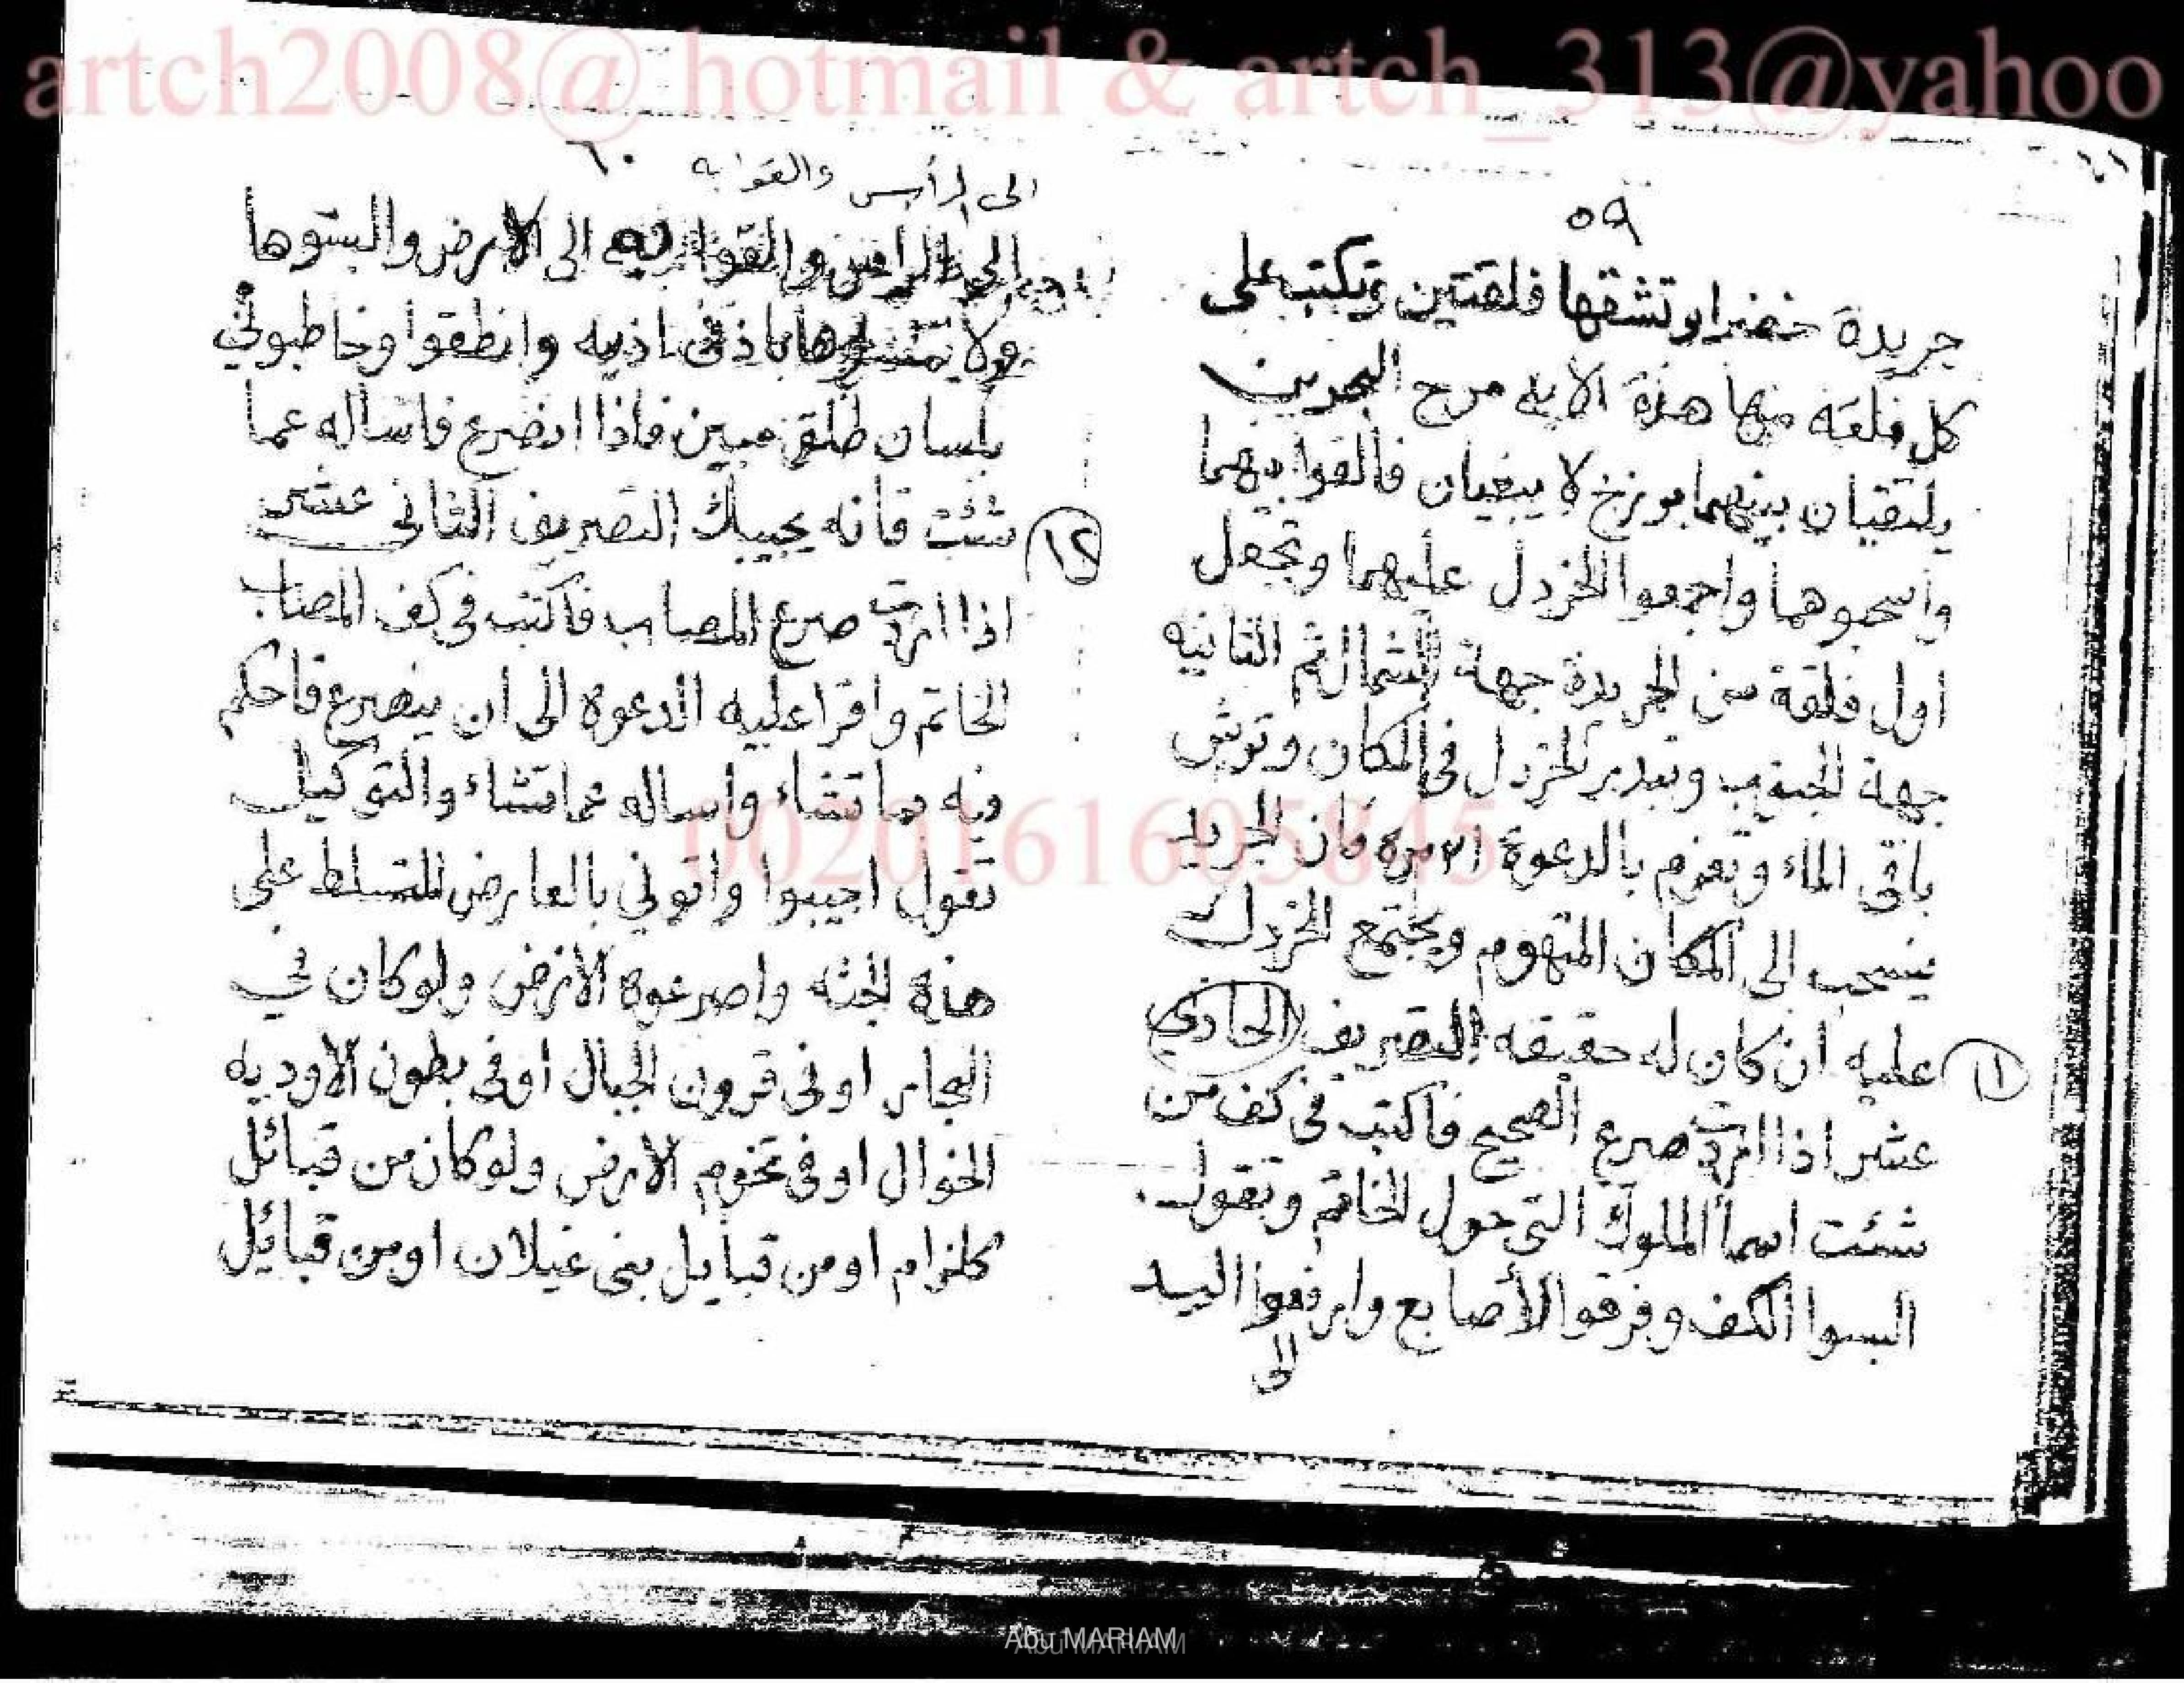 artch2008@ hotmail & artch_313@yahoo
٥٩
جريدة خضرا وتشقها فلقتين وتكتب على
كل فلقه منها هذة الايه مرج البحرين
يلتقيان بينهما برزخ لا يبغيان فالقوا بهما
واسحبوهما واجمعوا الخردل عليهما وتجعل
اول فلقة من الجريدة جهة الشمال ثم الثانيه
جهة الجنوب وتبدر الخردل في المكان وترش
باقى الماء وتعزم بالدعوة مرة فان الجريد
ينسحب الى المكان المتهوم ويجتمع الخردل
عليه ان كان له حقيقه التصريف الحادي
١١
عشر اذا اردت صرع الصحيح فاكتب فى كف من
شئت اسما الملوك التى حول الخاتم وتقول
البسوا الكف وفرقوا الأصابع وارفعوا اليد
الى
٦٠
الى الرأس والقوا به
الى الراس والقوا به الى الارض والبسوها
ولا اذيه وانطقوا وخاطبوني
بلسان طلق مبين فاذا انصرع فاساله عما
شئت فانه يجيبك التصريف الثانى عشر
١٢
اذا اردت صرع المصاب فاكتب فى كف المصاب
الخاتم واقرا عليه الدعوه الى ان ينصرع فاحكم
فيه بما تشاء واساله عما تشاء والتوكيل
تقول اجيبوا واتوني بالعارض المتسلط على
هذه الجثه واصرعوه الارض ولو كان في
البحار او فى قرون الجبال او فى بطون الاوديه
الخوال او فى تخوم الارض ولو كان من قبائل
كلزام او من قبايل بنى غيلان او من قبائل
0020161605845
Abu MARIAM